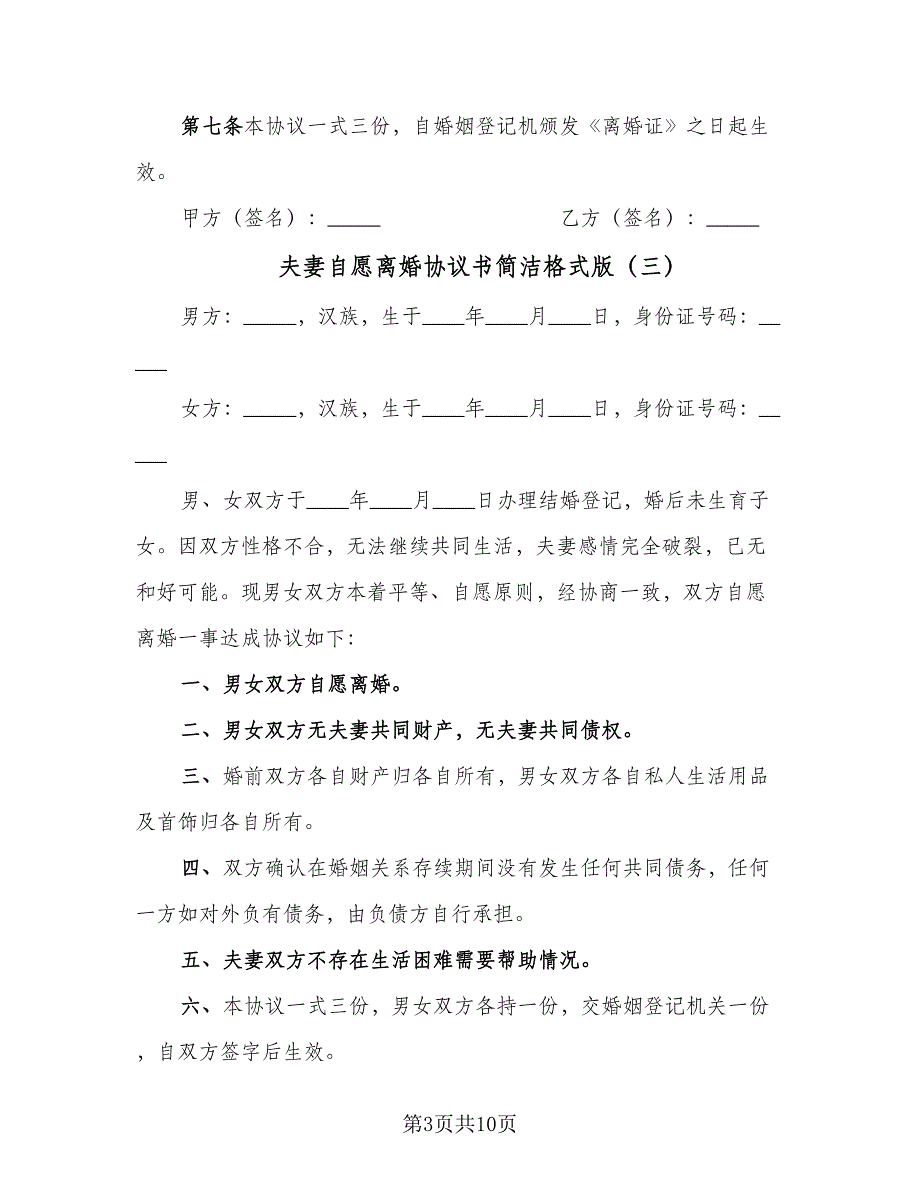 第七条本协议一式三份，自婚姻登记机颁发《离婚证》之日起生
效。
甲方（签名）：_____ 乙方（签名）：_____
夫妻自愿离婚协议书简洁格式版（三）
男方：_____，汉族，生于____年____月____日，身份证号码：__
___
女方：_____，汉族，生于____年____月____日，身份证号码：__
___
男、女双方于____年____月____日办理结婚登记，婚后未生育子
女。因双方性格不合，无法继续共同生活，夫妻感情完全破裂，已无
和好可能。现男女双方本着平等、自愿原则，经协商一致，双方自愿
离婚一事达成协议如下：
一、男女双方自愿离婚。
二、男女双方无夫妻共同财产，无夫妻共同债权。
三、婚前双方各自财产归各自所有，男女双方各自私人生活用品
及首饰归各自所有。
四、双方确认在婚姻关系存续期间没有发生任何共同债务，任何
一方如对外负有债务，由负债方自行承担。
五、夫妻双方不存在生活困难需要帮助情况。
六、本协议一式三份，男女双方各持一份，交婚姻登记机关一份
，自双方签字后生效。
第3页共10页